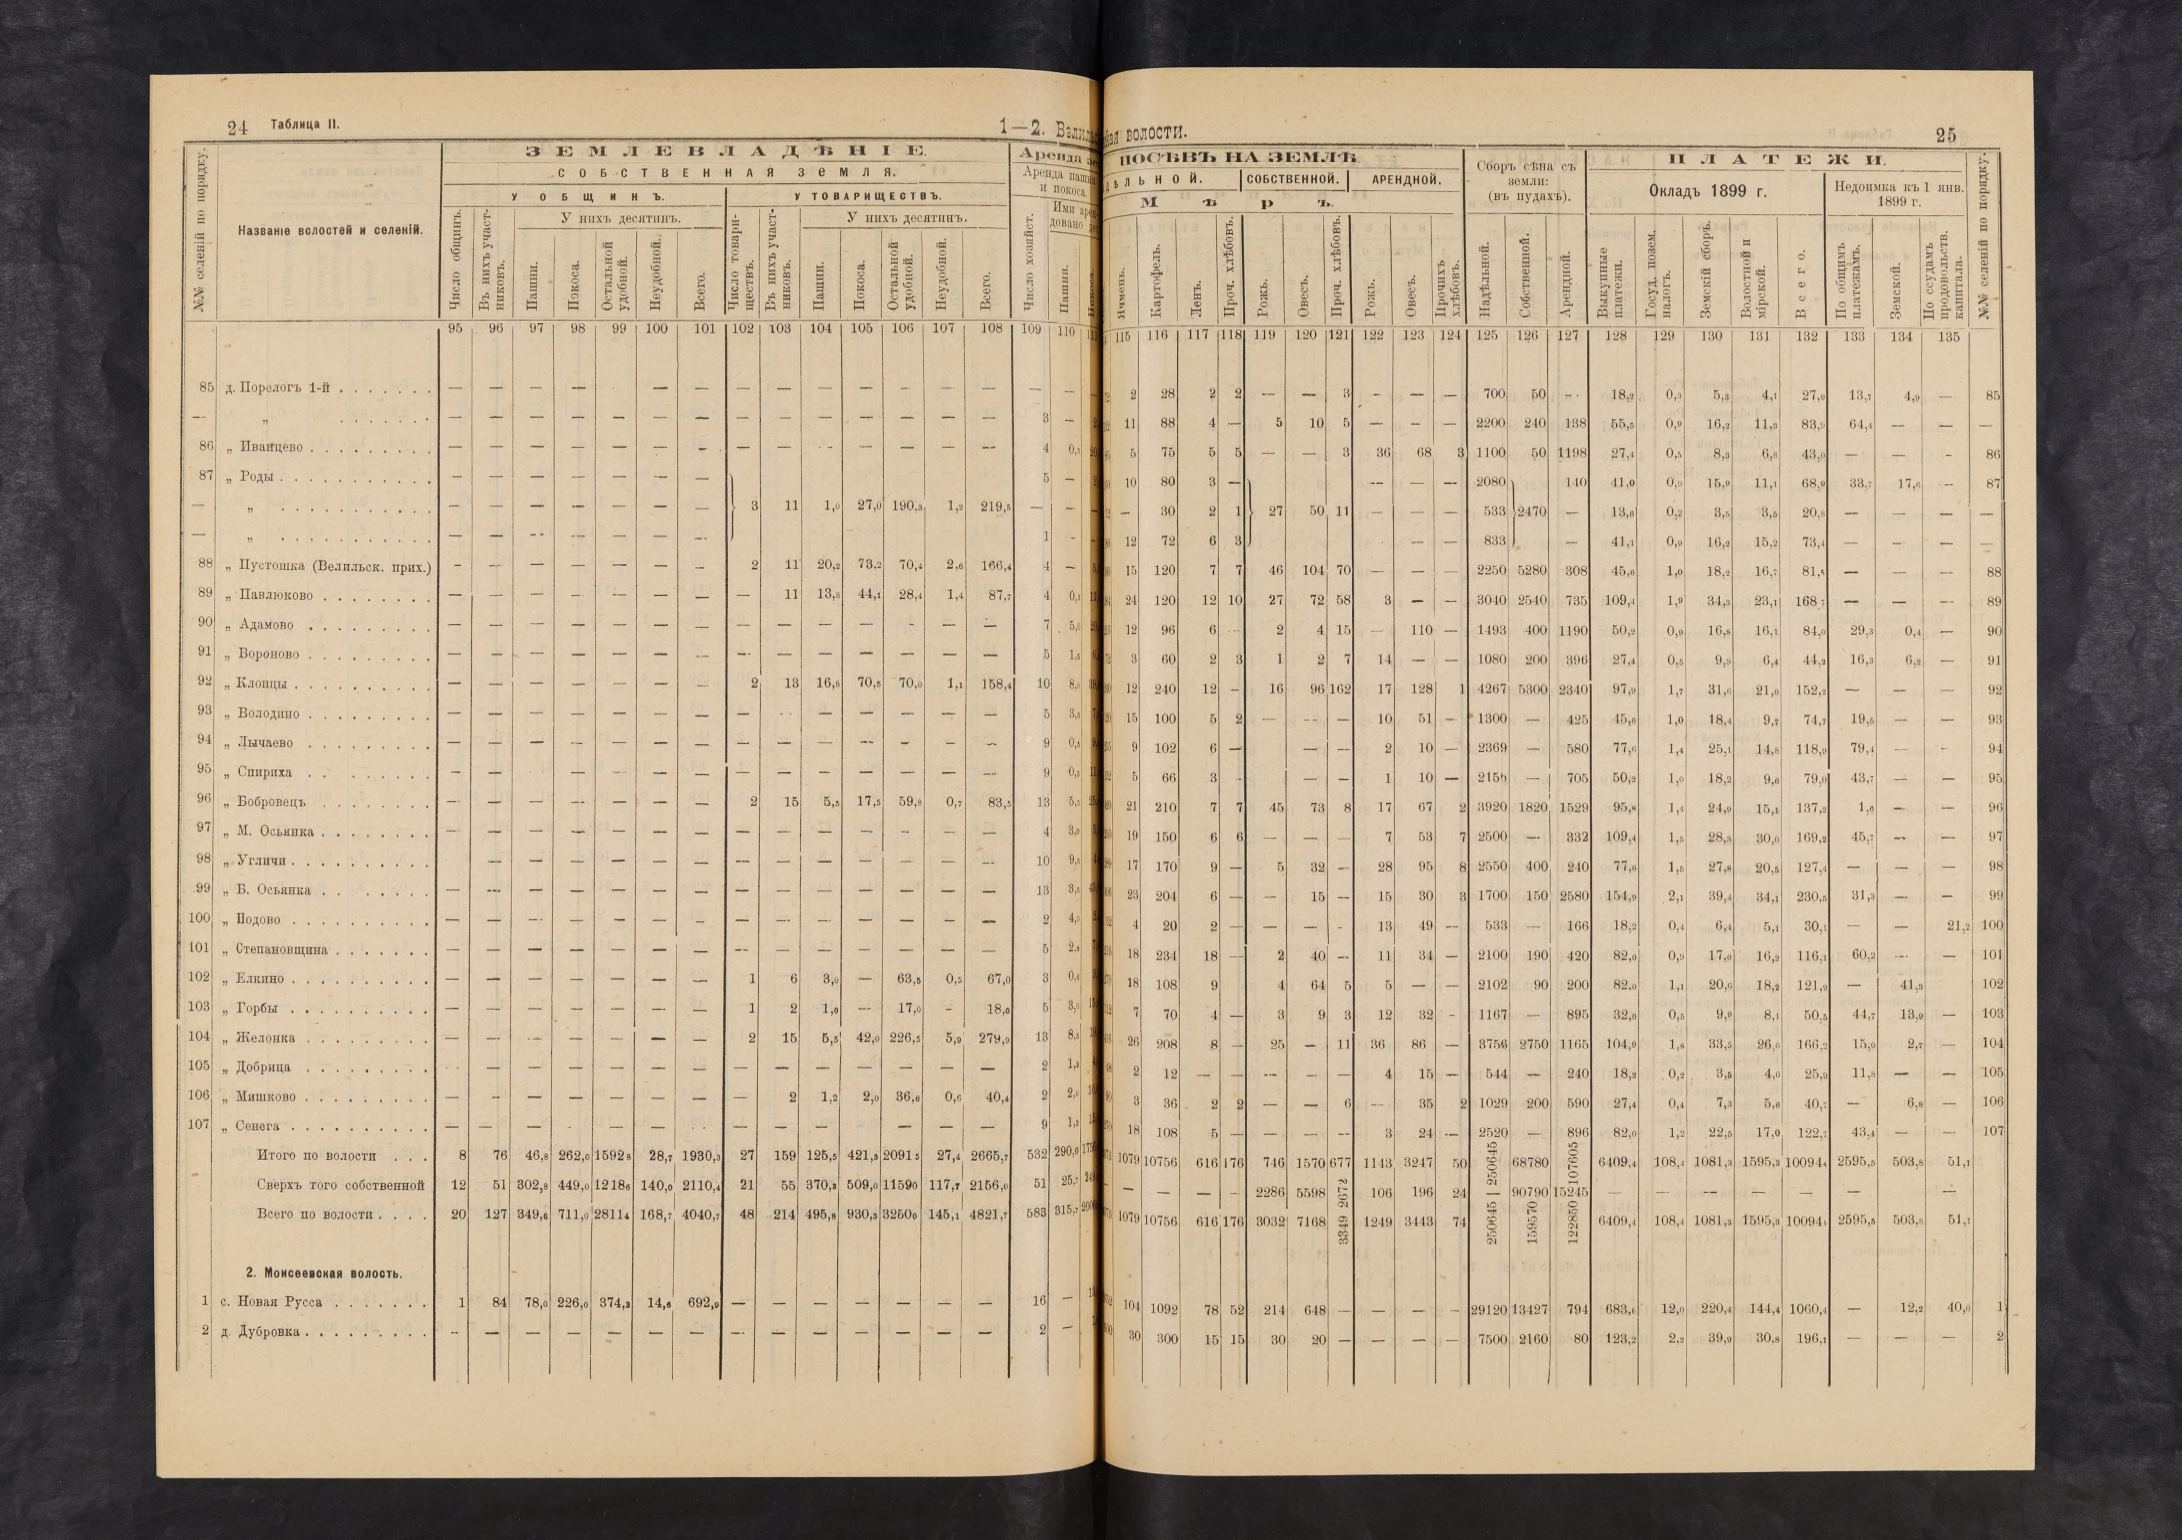 24 Таблица II.
1—2. Вели
ЗЕМЛЕВЛАДѢНІЕ.
СОБСТВЕННАЯ ЗЕМЛЯ.
У ОБЩИНЪ. У ТОВАРИЩЕСТВЪ.
У нихъ десятинъ. У нихъ десятинъ.
№№ селеній по порядку.
Названіе волостей и селеній.
Число общинъ. Въ нихъ участниковъ. Пашни. Покоса. Остальной удобной. Неудобной. Всего. Число товариществъ. Въ нихъ участниковъ. Пашни. Покоса. Остальной удобной. Неудобной. Всего. Число хозяйст. Пашни.
95 96 97 98 99 100 101 102 103 104 105 106 107 108 109 110
85 д. Порелогъ 1-й — — — — — — — — — — — — — — —
— „ — — — — — — — — — — — — — 3 —
86 „ Иванцево — — — — — — — — — — — — — — 4 0,3
87 „ Роды — — — — — — — 5 —
— „ — — — — — — — 3 11 1,0 27,0 190,3 1,2 219,5 — —
— „ — — — — — — — 1 -
88 „ Пустошка (Велильск. прих.) — — — — — — — 2 11 20,2 73,2 70,4 2,6 166,4 4 —
89 „ Павлюково — — — — — — — — 11 13,8 44,1 28,4 1,4 87,7 4 0,1
90 „ Адамово — — — — — — — — — — — — — — 7 5,0
91 „ Вороново — — — — — — — — — — — — — — 5 1,5
92 „ Клопцы — — — — — — — 2 13 16,8 70,5 70,0 1,1 158,4 10 8,0
93 „ Володино — — — — — — — — — — — — — — 5 3,5
94 „ Лычаево — — — — — — — — — — — — — — 9 0,5
95 „ Спириха — — — — — — — — — — — — — — 9 0,5
96 „ Бобровецъ — — — — — — — 2 15 5,5 17,5 59,8 0,7 83,5 13 5,5
97 „ М. Осьянка — — — — — — — — — — — — — — 4 3,0
98 „ Угличи — — — — — — — — — — — — — 10 9,5
99 „ Б. Осьянка — — — — — — — — — — — — — — 13 3,5
100 „ Подово — — — — — — — — — — — — — — 2 4,0
101 „ Степановщина — — — — — — — — — — — — — — 5 2,8
102 „ Елкино — — — — — — — 1 6 3,0 — 63,5 0,5 67,0 3 0,4
103 „ Горбы — — — — — — — 1 2 1,0 — 17,0 — 18,0 5 3,0
104 „ Желонка — — — — — — — 2 15 5,5 42,0 226,5 5,9 279,9 13 8,5
105 „ Добрица — — — — — — — — — — — — — 2 1,3
106 „ Мишково — — — — — — — — 2 1,2 2,0 36,6 0,6 40,4 2 2,0
107 „ Сенега — — — — — — — — — — — — 9 1,3
Итого по волости 8 76 46,8 262,0 1592,8 28,7 1930,3 27 159 125,5 421,3 2091,5 27,4 2665,7 532 290,0
Сверхъ того собственной 12 51 302,8 449,0 1218,6 140,0 2110,4 21 55 370,3 509,0 1159,0 117,7 2156,0 51 25,7
Всего по волости 20 127 349,6 711,0 2811,4 168,7 4040,7 48 214 495,8 930,3 3250,0 145,1 4821,7 583 315,7
2. Моисеевская волость.
1 с. Новая Русса 1 84 78,0 226,0 374,3 14,6 692,9 — — — — — — — 16 —
2 д. Дубровка — — — — — — — — — — — — — — 2 —
ная волости. 25
ПОСѢВЪ НА ЗЕМЛѢ ПЛАТЕЖИ.
ДѢЛЬНОЙ. СОБСТВЕННОЙ. АРЕНДНОЙ. Сборъ сѣна съ земли: (въ пудахъ). Окладъ 1899 г. Недоимка къ 1 янв. 1899 г.
Мѣръ.
Ячмень. Картофель. Ленъ. Проч. хлѣбовъ. Рожь. Овесъ. Проч. хлѣбовъ. Рожь. Овесъ. Прочихъ хлѣбовъ. Надѣльной. Собственной. Арендной. Выкупные платежи. Госуд. позем. налогъ. Земскій сборъ. Волостной и мірской. Всего. По общимъ платежамъ. Земской. По ссудамъ продовольств. капитала. №№ селеній по порядку.
115 116 117 118 119 120 121 122 123 124 125 126 127 128 129 130 131 132 133 134 135
2 28 2 2 — — 3 - — — 700 50 — 18,2 0,3 5,3 4,1 27,9 13,7 4,9 — 85
11 88 4 — 5 10 5 — — — 2200 240 138 55,5 0,9 16,2 11,3 83,9 64,4 — — —
5 75 5 5 — — 3 36 68 3 1100 50 1198 27,4 0,5 8,3 6,8 43,0 — — - 86
10 80 3 — — — — 2080 140 41,0 0,9 15,9 11,1 68,9 33,7 17,6 — 87
— 30 2 1 27 50 11 — — — 533 2470 — 13,6 0,2 3,5 3,5 20,8 — — — —
12 72 6 3 — — — 833 — 41,1 0,9 16,2 15,2 73,4 — — — —
15 120 7 7 46 104 70 — — — 2250 5280 308 45,6 1,0 18,2 16,7 81,5 — — — 88
24 120 12 10 27 72 58 3 — — 3040 2540 735 109,4 1,9 34,3 23,1 168,7 — — — 89
12 96 6 — 2 4 15 — 110 — 1493 400 1190 50,2 0,9 16,8 16,1 84,0 29,3 0,4 — 90
3 60 2 3 1 2 7 14 — — 1080 200 396 27,4 0,5 9,9 6,4 44,2 16,3 6,2 — 91
12 240 12 - 16 96 162 17 128 1 4267 5300 2340 97,9 1,7 31,6 21,0 152,2 — — — 92
15 100 5 2 — — — 10 51 — 1300 — 425 45,6 1,0 18,4 9,7 74,7 19,5 — — 93
9 102 6 — — — 2 10 — 2369 — 580 77,6 1,4 25,1 14,8 118,9 79,4 — - 94
5 66 3 - — — 1 10 — 2156 — 705 50,2 1,0 18,2 9,6 79,0 43,7 — — 95
21 210 7 7 45 73 8 17 67 2 3920 1820 1529 95,8 1,4 24,9 15,1 137,2 1,6 — — 96
19 150 6 6 — — — 7 53 7 2500 — 332 109,4 1,5 28,3 30,0 169,2 45,7 — — 97
17 170 9 — 5 32 — 28 95 8 2550 400 240 77,6 1,5 27,8 20,5 127,4 — — — 98
23 204 6 — — 15 — 15 30 3 1700 150 2580 154,9 2,1 39,4 34,1 230,5 31,3 — — 99
4 20 2 — — — - 13 49 — 533 — 166 18,2 0,4 6,4 5,1 30,1 — — 21,2 100
18 234 18 — 2 40 — 11 34 — 2100 190 420 82,0 0,9 17,0 16,2 116,1 60,2 — — 101
18 108 9 4 64 5 5 — — 2102 90 200 82,0 1,1 20,6 18,2 121,9 — 41,3 102
7 70 4 — 3 9 3 12 32 - 1167 — 895 32,0 0,5 9,9 8,1 50,5 44,7 13,9 — 103
26 208 8 — 25 — 11 36 86 — 3756 2750 1165 104,9 1,8 33,5 26,0 166,2 15,0 2,7 — 104
2 12 — — — — — 4 15 — 544 — 240 18,2 0,2 3,5 4,0 25,9 11,8 — — 105
3 36 2 2 — — 6 — 35 2 1029 200 590 27,4 0,4 7,3 5,6 40,7 — 6,8 — 106
18 108 5 — — — — 3 24 — 2520 — 896 82,0 1,2 22,5 17,0 122,7 43,4 — — 107
1079 10756 616 176 746 1570 677 1143 3247 50 250645 68780 107605 6409,4 108,4 1081,3 1595,3 10094,4 2595,5 503,8 51,1
— — — - 2286 5598 2672 106 196 24 — 90790 15245 — — — — — — —
1079 10756 616 176 3032 7168 3349 1249 3443 74 250645 159570 122850 6409,4 108,4 1081,3 1595,3 10094,4 2595,5 503,8 51,1
104 1092 78 52 214 648 — — — - 29120 13427 794 683,6 12,0 220,4 144,4 1060,4 — 12,2 40,0 1
30 300 15 15 30 20 — — — — 7500 2160 80 123,2 2,2 39,9 30,8 196,1 — — — 2